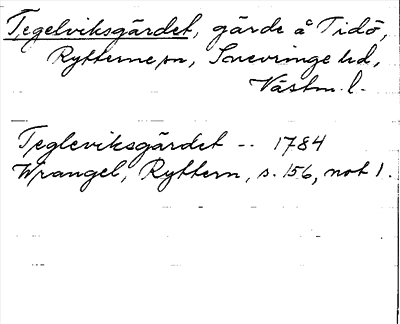 Tegelviksgärdet, gärde å Tidö,
Rytterne sn, Snevringe hd,
Västm. l.
Tegleviksgärdet -- 1784
Wrangel, Ryttern, s. 156, not 1.